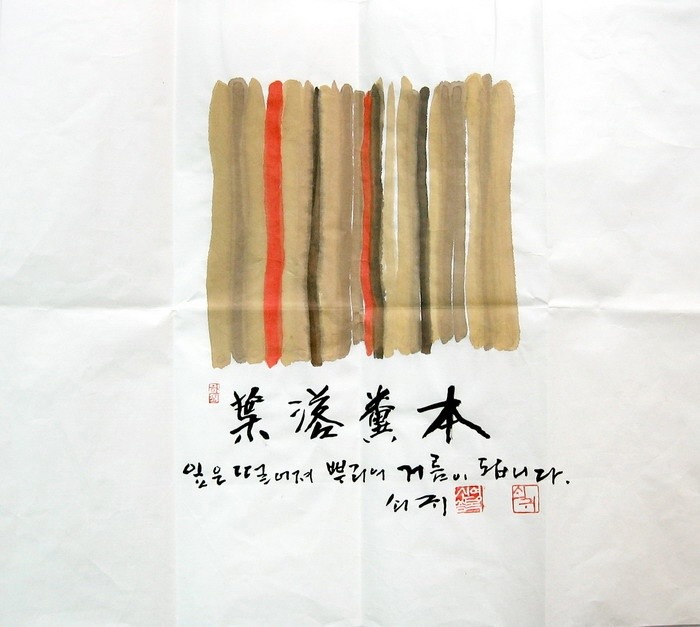 葉落糞本
잎은 떨어져 뿌리의 거름이 됩니다.
쇠귀
쇠귀